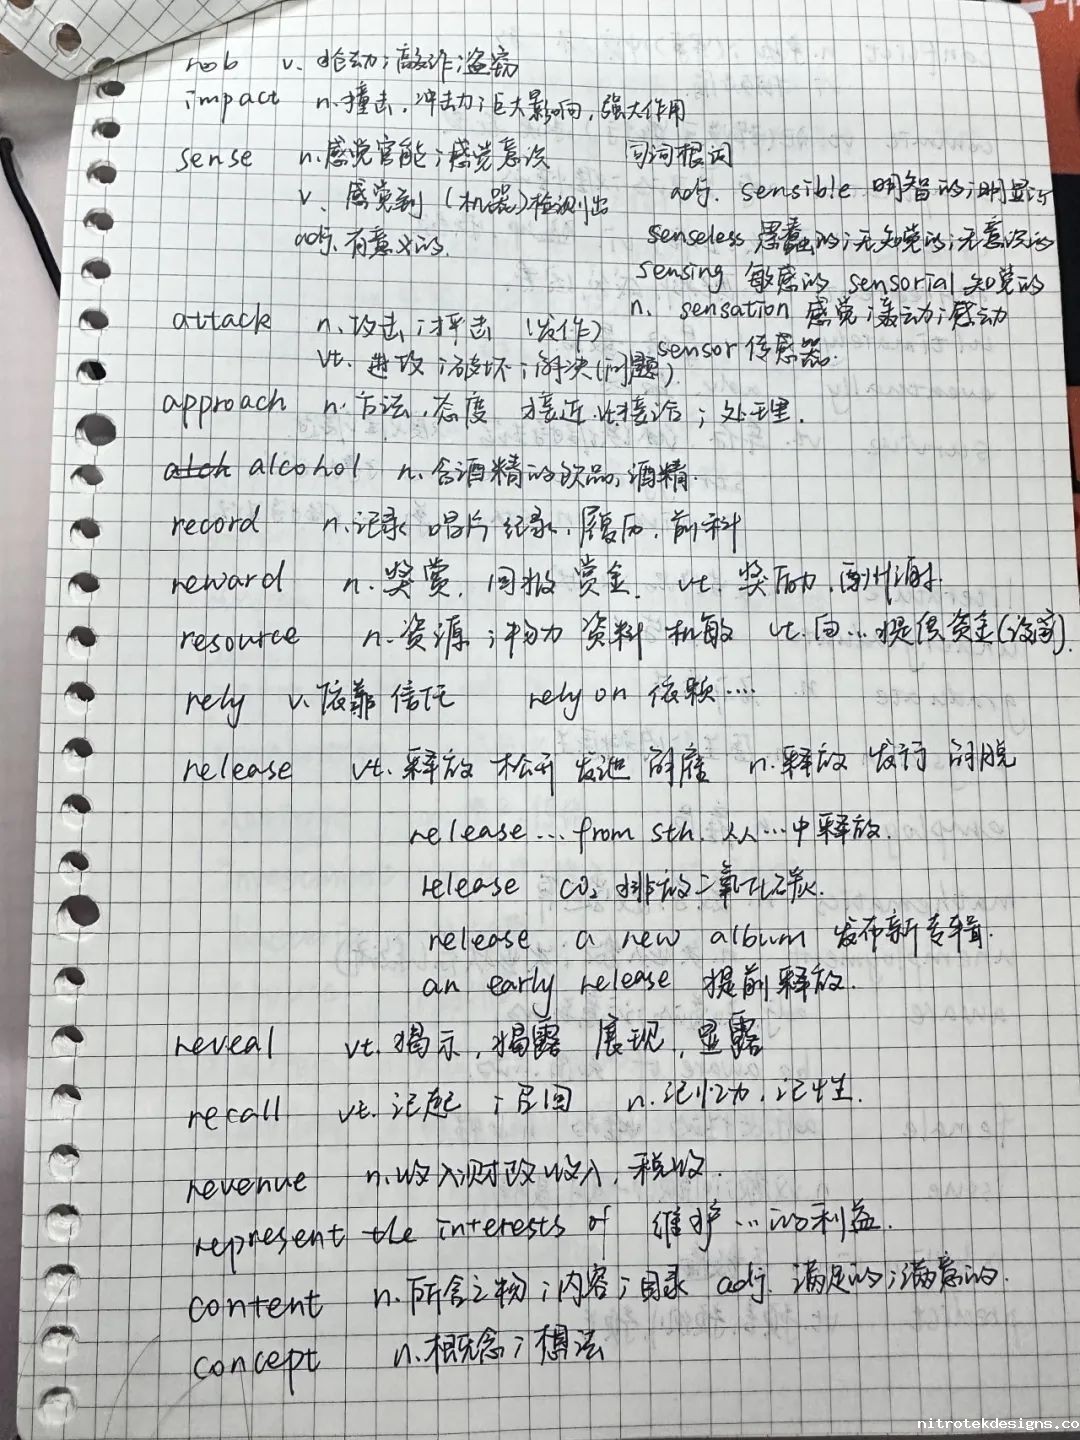 rob v. 抢劫；敲诈；盗窃
impact n. 撞击，冲击力；巨大影响，强大作用
sense n. 感觉官能；感觉意识 同词根词
v. 感觉到 (机器)检测出 adj. sensible 明智的；明显的
adj. 有意义的. senseless 愚蠢的；无知觉的；无意识的
sensing 敏感的 sensorial 知觉的
n. sensation 感觉；轰动；感动
attack n. 攻击；抨击 (发作)
vt. 进攻；破坏；解决(问题) sensor 传感器.
approach n. 方法，态度 接近 vt. 接洽；处理.
alcohol n. 含酒精的饮品，酒精.
record n. 记录 唱片 纪录，履历，前科
reward n. 奖赏，回报 赏金. vt. 奖励，酬谢.
resource n. 资源；物力 资料 机敏 vt. 向…提供资金(设备).
rely v. 依靠 信任 rely on 依赖….
release vt. 释放 松开 发泄 解雇 n. 释放 发行 解脱
release … from sth. 从…中释放.
release CO₂ 排放二氧化碳.
release a new album 发布新专辑.
an early release 提前释放.
reveal vt. 揭示，揭露 展现，显露
recall vt. 记起；召回 n. 记忆力，记性.
revenue n. 收入 财政收入，税收.
represent the interests of 维护…的利益.
content n. 所含之物；内容；目录 adj. 满足的；满意的.
concept n. 概念；想法
nitrotekdesigns.co